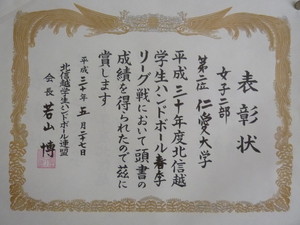 表彰状
女子二部
第二位 仁愛大学
平成三十年度北信越
学生ハンドボール春季
リーグ戦において頭書の
成績を得られたので茲に
賞します
平成三十年五月二十七日
北信越学生ハンドボール連盟
会長 若山 博